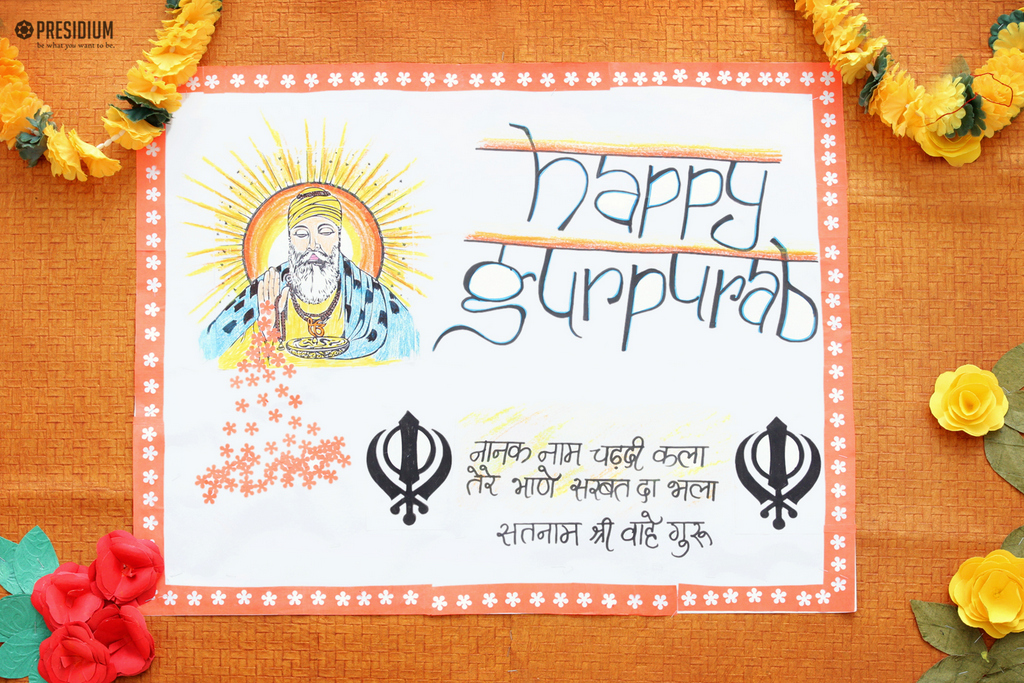 PRESIDIUM
be what you want to be.
happy
gurpurab
नानक नाम चढ़दी कला
तेरे भाणे सरबत दा भला
सतनाम श्री वाहे गुरू